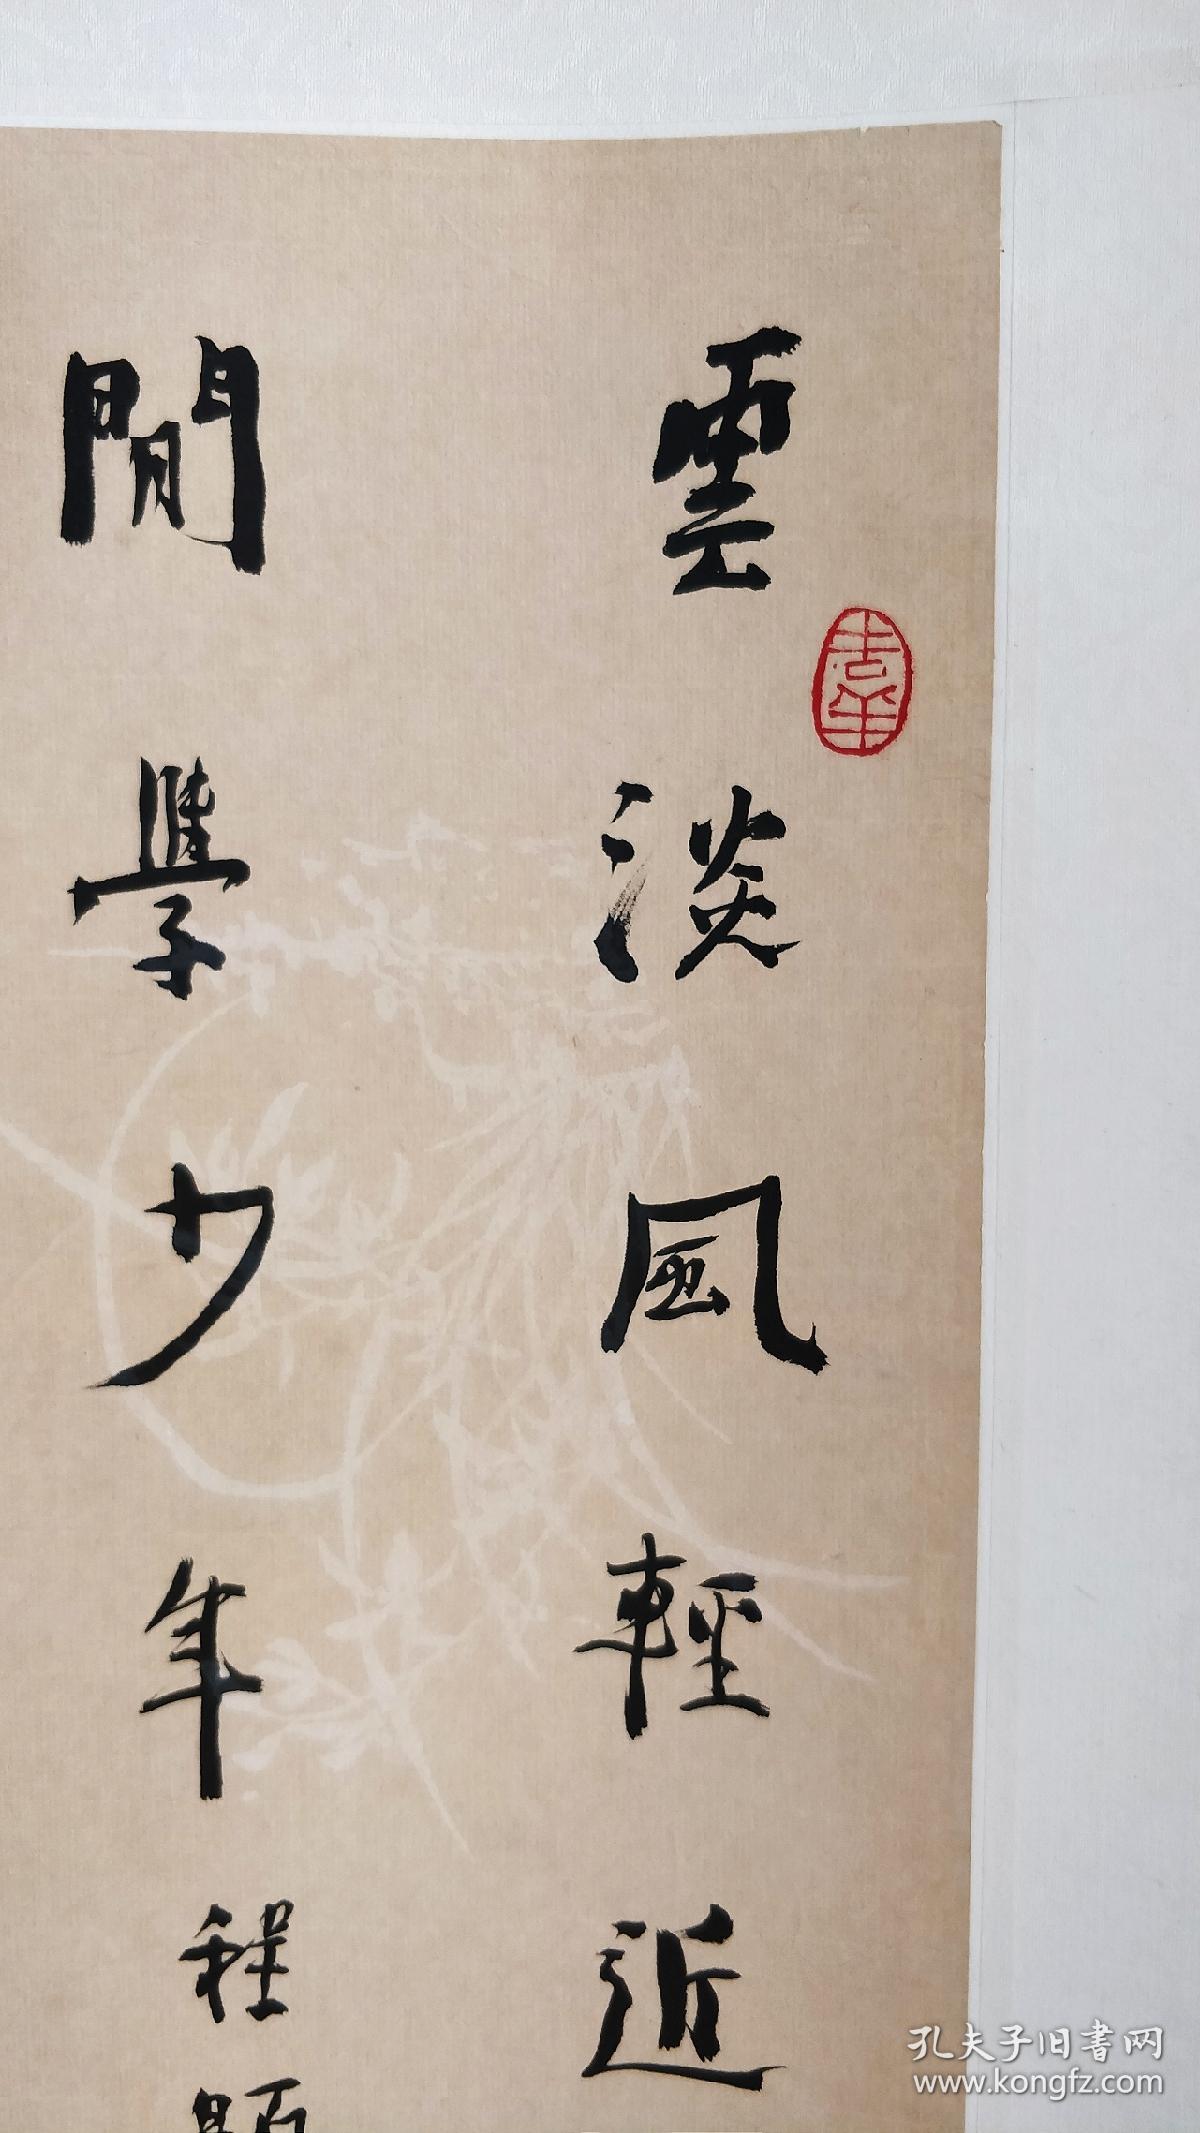 雲淡風輕近
閒學少年
程
孔夫子旧書网
www.kongfz.com